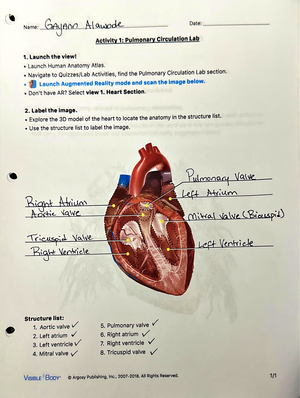 Name: Gayann Alawode Date:
Activity 1: Pulmonary Circulation Lab
1. Launch the view!
• Launch Human Anatomy Atlas.
• Navigate to Quizzes/Lab Activities, find the Pulmonary Circulation Lab section.
• Launch Augmented Reality mode and scan the image below.
• Don't have AR? Select view 1. Heart Section.
2. Label the image.
• Explore the 3D model of the heart to locate the anatomy in the structure list.
• Use the structure list to label the image.
Pulmonary Valve
Right Atrium Left Atrium
Aortic Valve Mitral Valve (Bicuspid)
Tricuspid Valve
Right Ventricle Left Ventricle
Structure list:
1. Aortic valve ✓ 5. Pulmonary valve ✓
2. Left atrium ✓ 6. Right atrium ✓
3. Left ventricle ✓ 7. Right ventricle ✓
4. Mitral valve ✓ 8. Tricuspid valve ✓
VISIBLE BODY © Argosy Publishing, Inc., 2007-2018. All Rights Reserved. 1/1